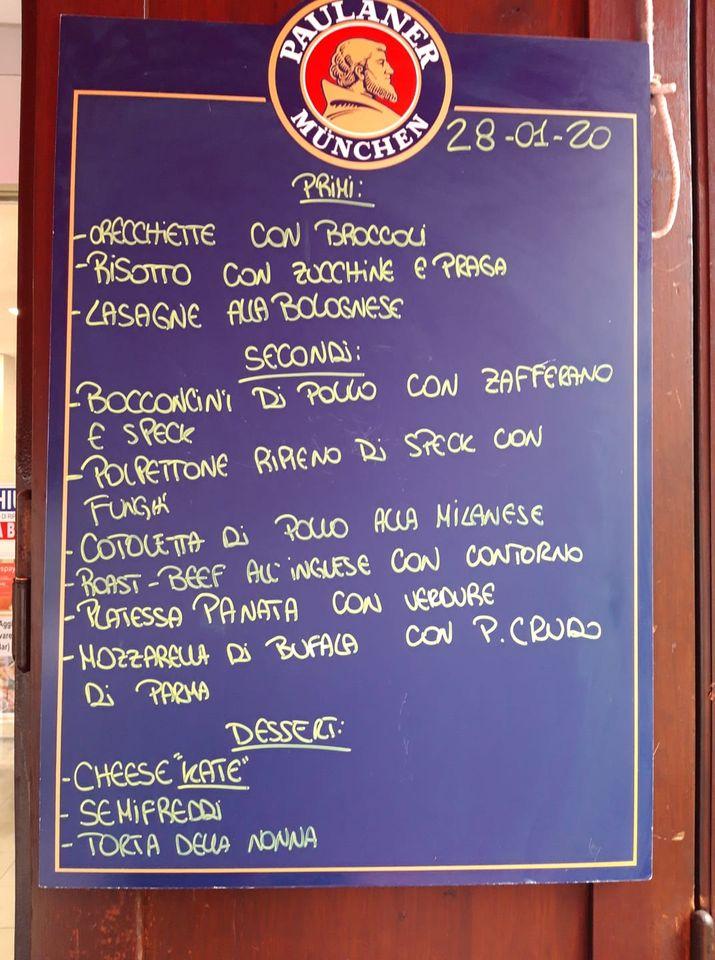 PAULANER
MÜNCHEN
28-01-20
PRIMI:
-ORECCHIETTE CON BROCCOLI
-RISOTTO CON ZUCCHINE E PRAGA
-LASAGNE ALLA BOLOGNESE
SECONDI:
-BOCCONCINI DI POLLO CON ZAFFERANO
E SPECK
-POLPETTONE RIPIENO DI SPECK CON
FUNGHI
-COTOLETTA DI POLLO ALLA MILANESE
-ROAST-BEEF ALL'INGLESE CON CONTORNO
-PLATESSA PANATA CON VERDURE
-MOZZARELLA DI BUFALA CON P. CRUDO
DI PARMA
DESSERT:
-CHEESE "KATE"
- SEMIFREDDI
- TORTA DELLA NONNA